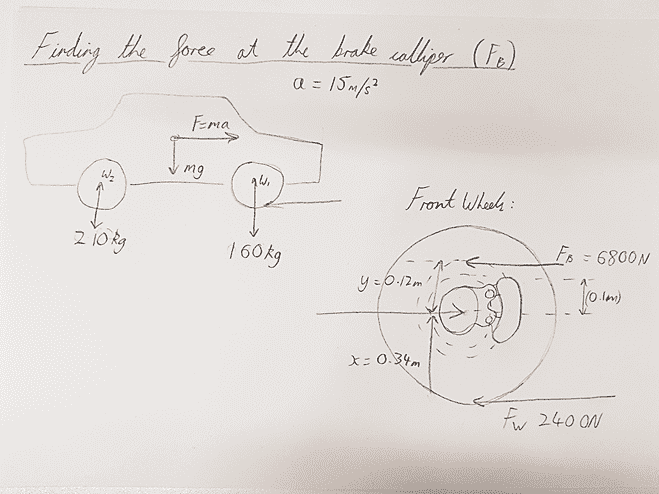 Finding the force at the brake calliper (FB)
a = 15m/s²
F=ma
mg
W2
W1
210kg
160kg
Front Wheels:
FB = 6800N
y=0.12m
(0.1m)
x=0.34m
FW 2400N